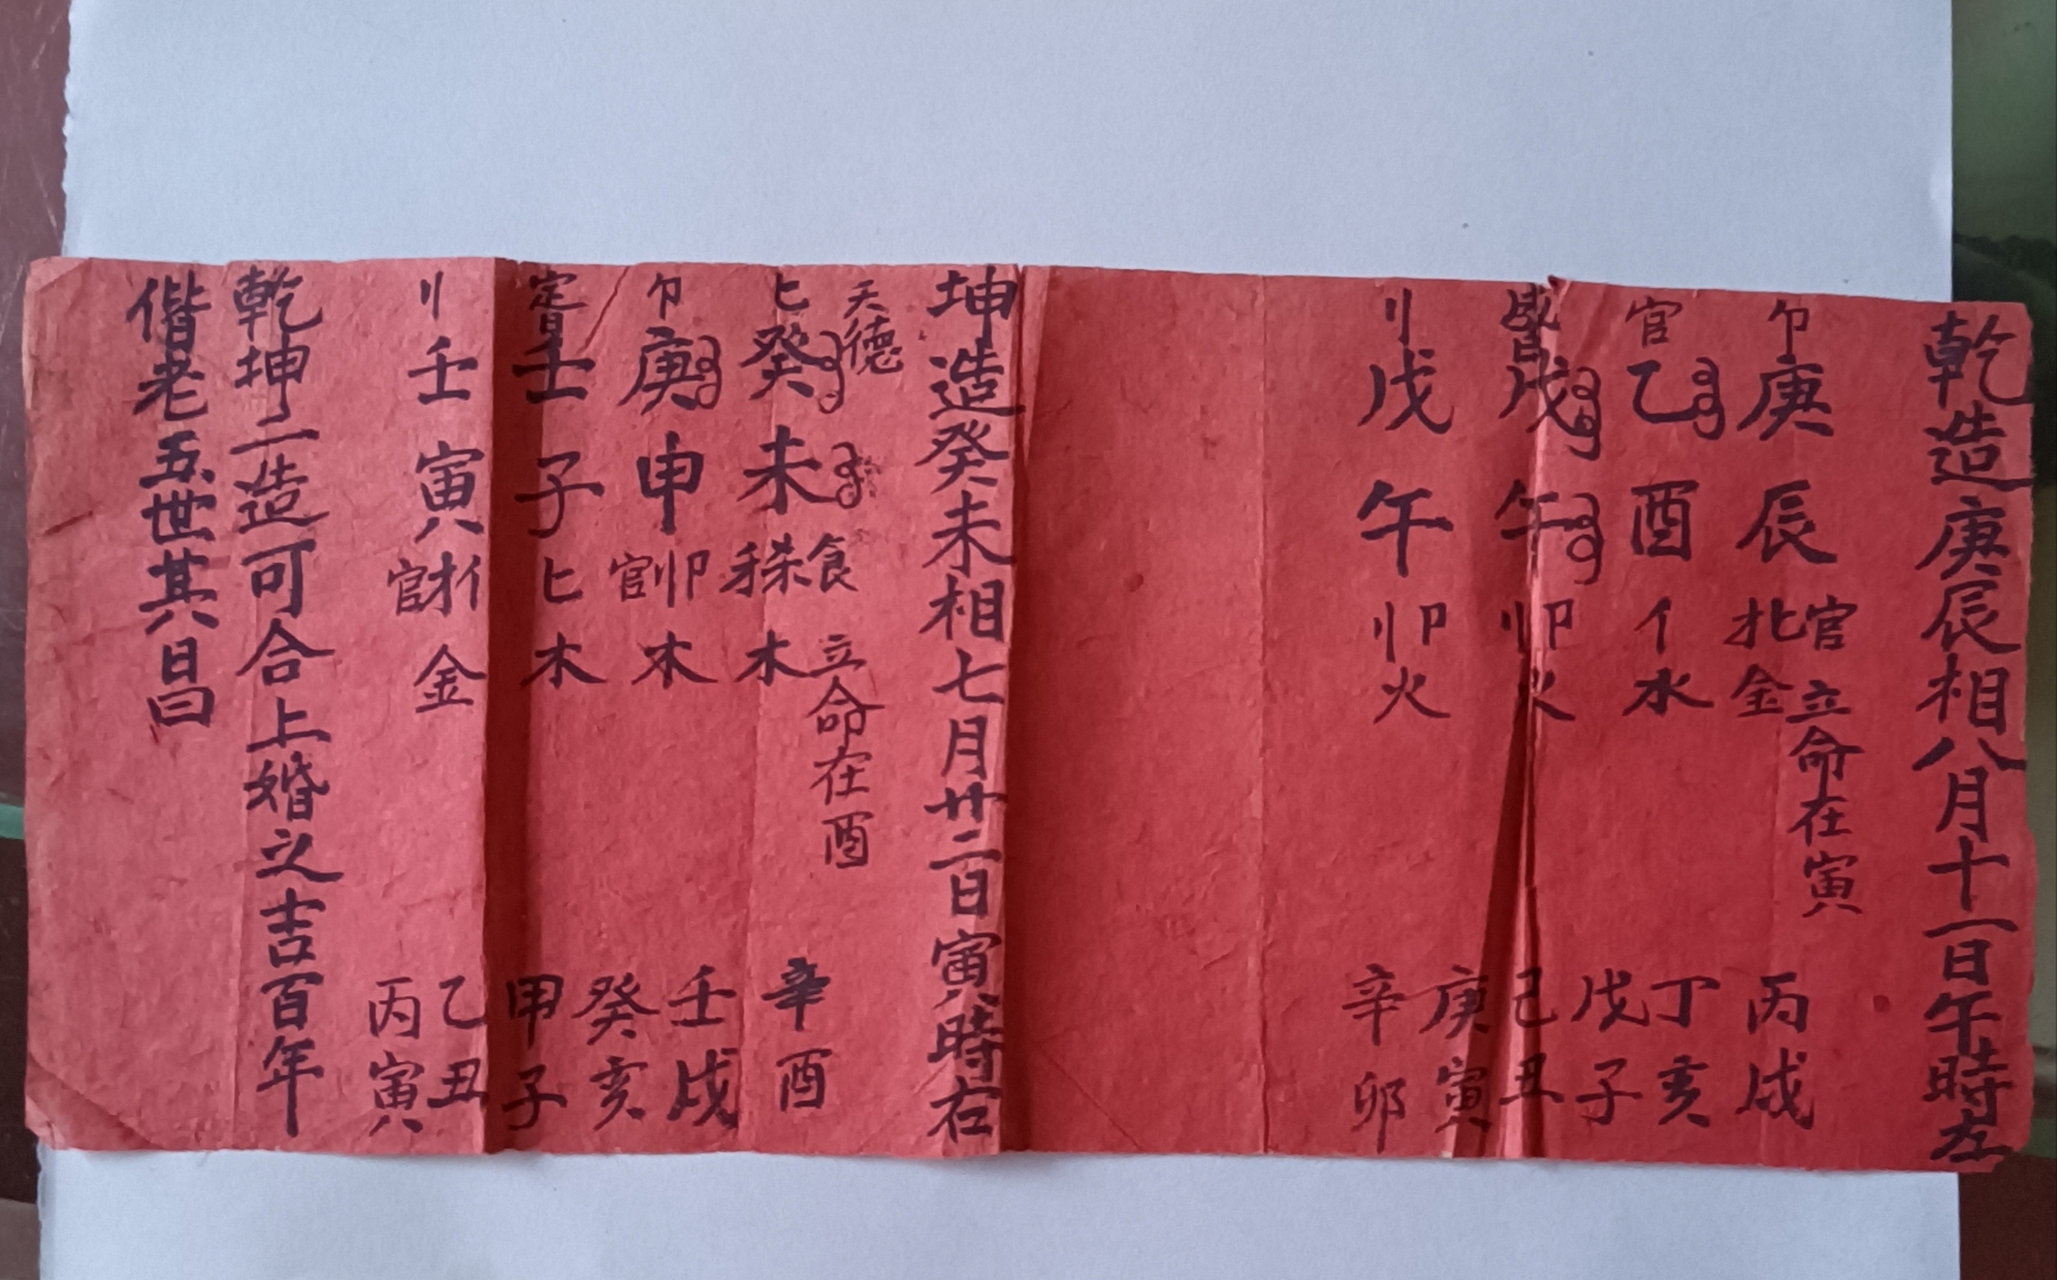 乾造庚辰相八月十一日午時左
官立命在寅
卩庚辰 金丙戌
官乙酉亻水丁亥
戊午卯火戊子
己丑
刂戊午卯火庚寅
辛卯
坤造癸未相七月廿二日寅時右
天德食立命在酉
匕癸未木辛酉
卩庚申官卯木壬戌
壬子匕木癸亥
甲子
刂壬寅官才金乙丑
丙寅
乾坤二造可合上婚之吉百年
偕老五世其昌